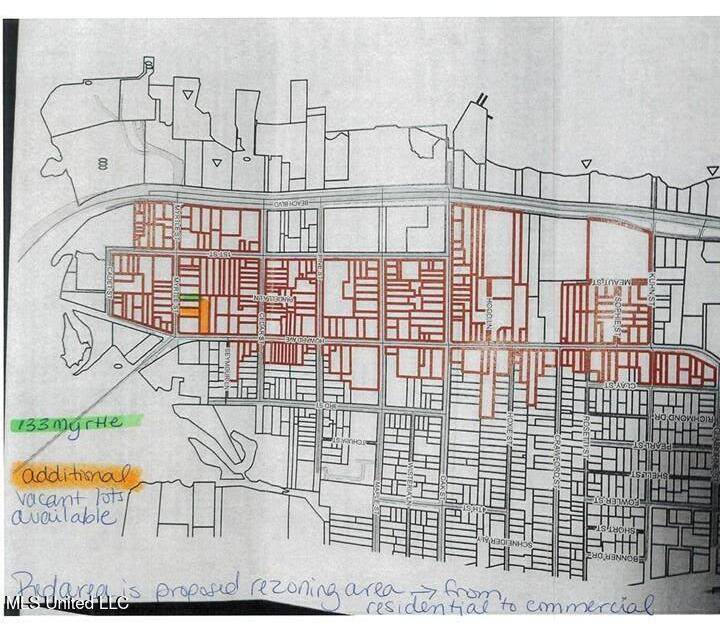 BEACH BLVD
MYRTLE ST
1ST ST
PINE ST
CEDAR ST
HOWARD AVE
HODDLN
MEAUT ST
SOPHIE ST
KUHN ST
CLAY ST
SEYMOUR LN
3RD ST
TCHULA ST
OAK ST
4TH ST
SCHNEIDER ALY
CRAWFORD ST
ROSETTI ST
RICHMOND DR
PEARL ST
SHELL ST
FOWLER ST
SHORT ST
BONNER DR
133 myrtle
additional
vacant lots
available
Red area is proposed rezoning area → from
residential to commercial
MLS United LLC